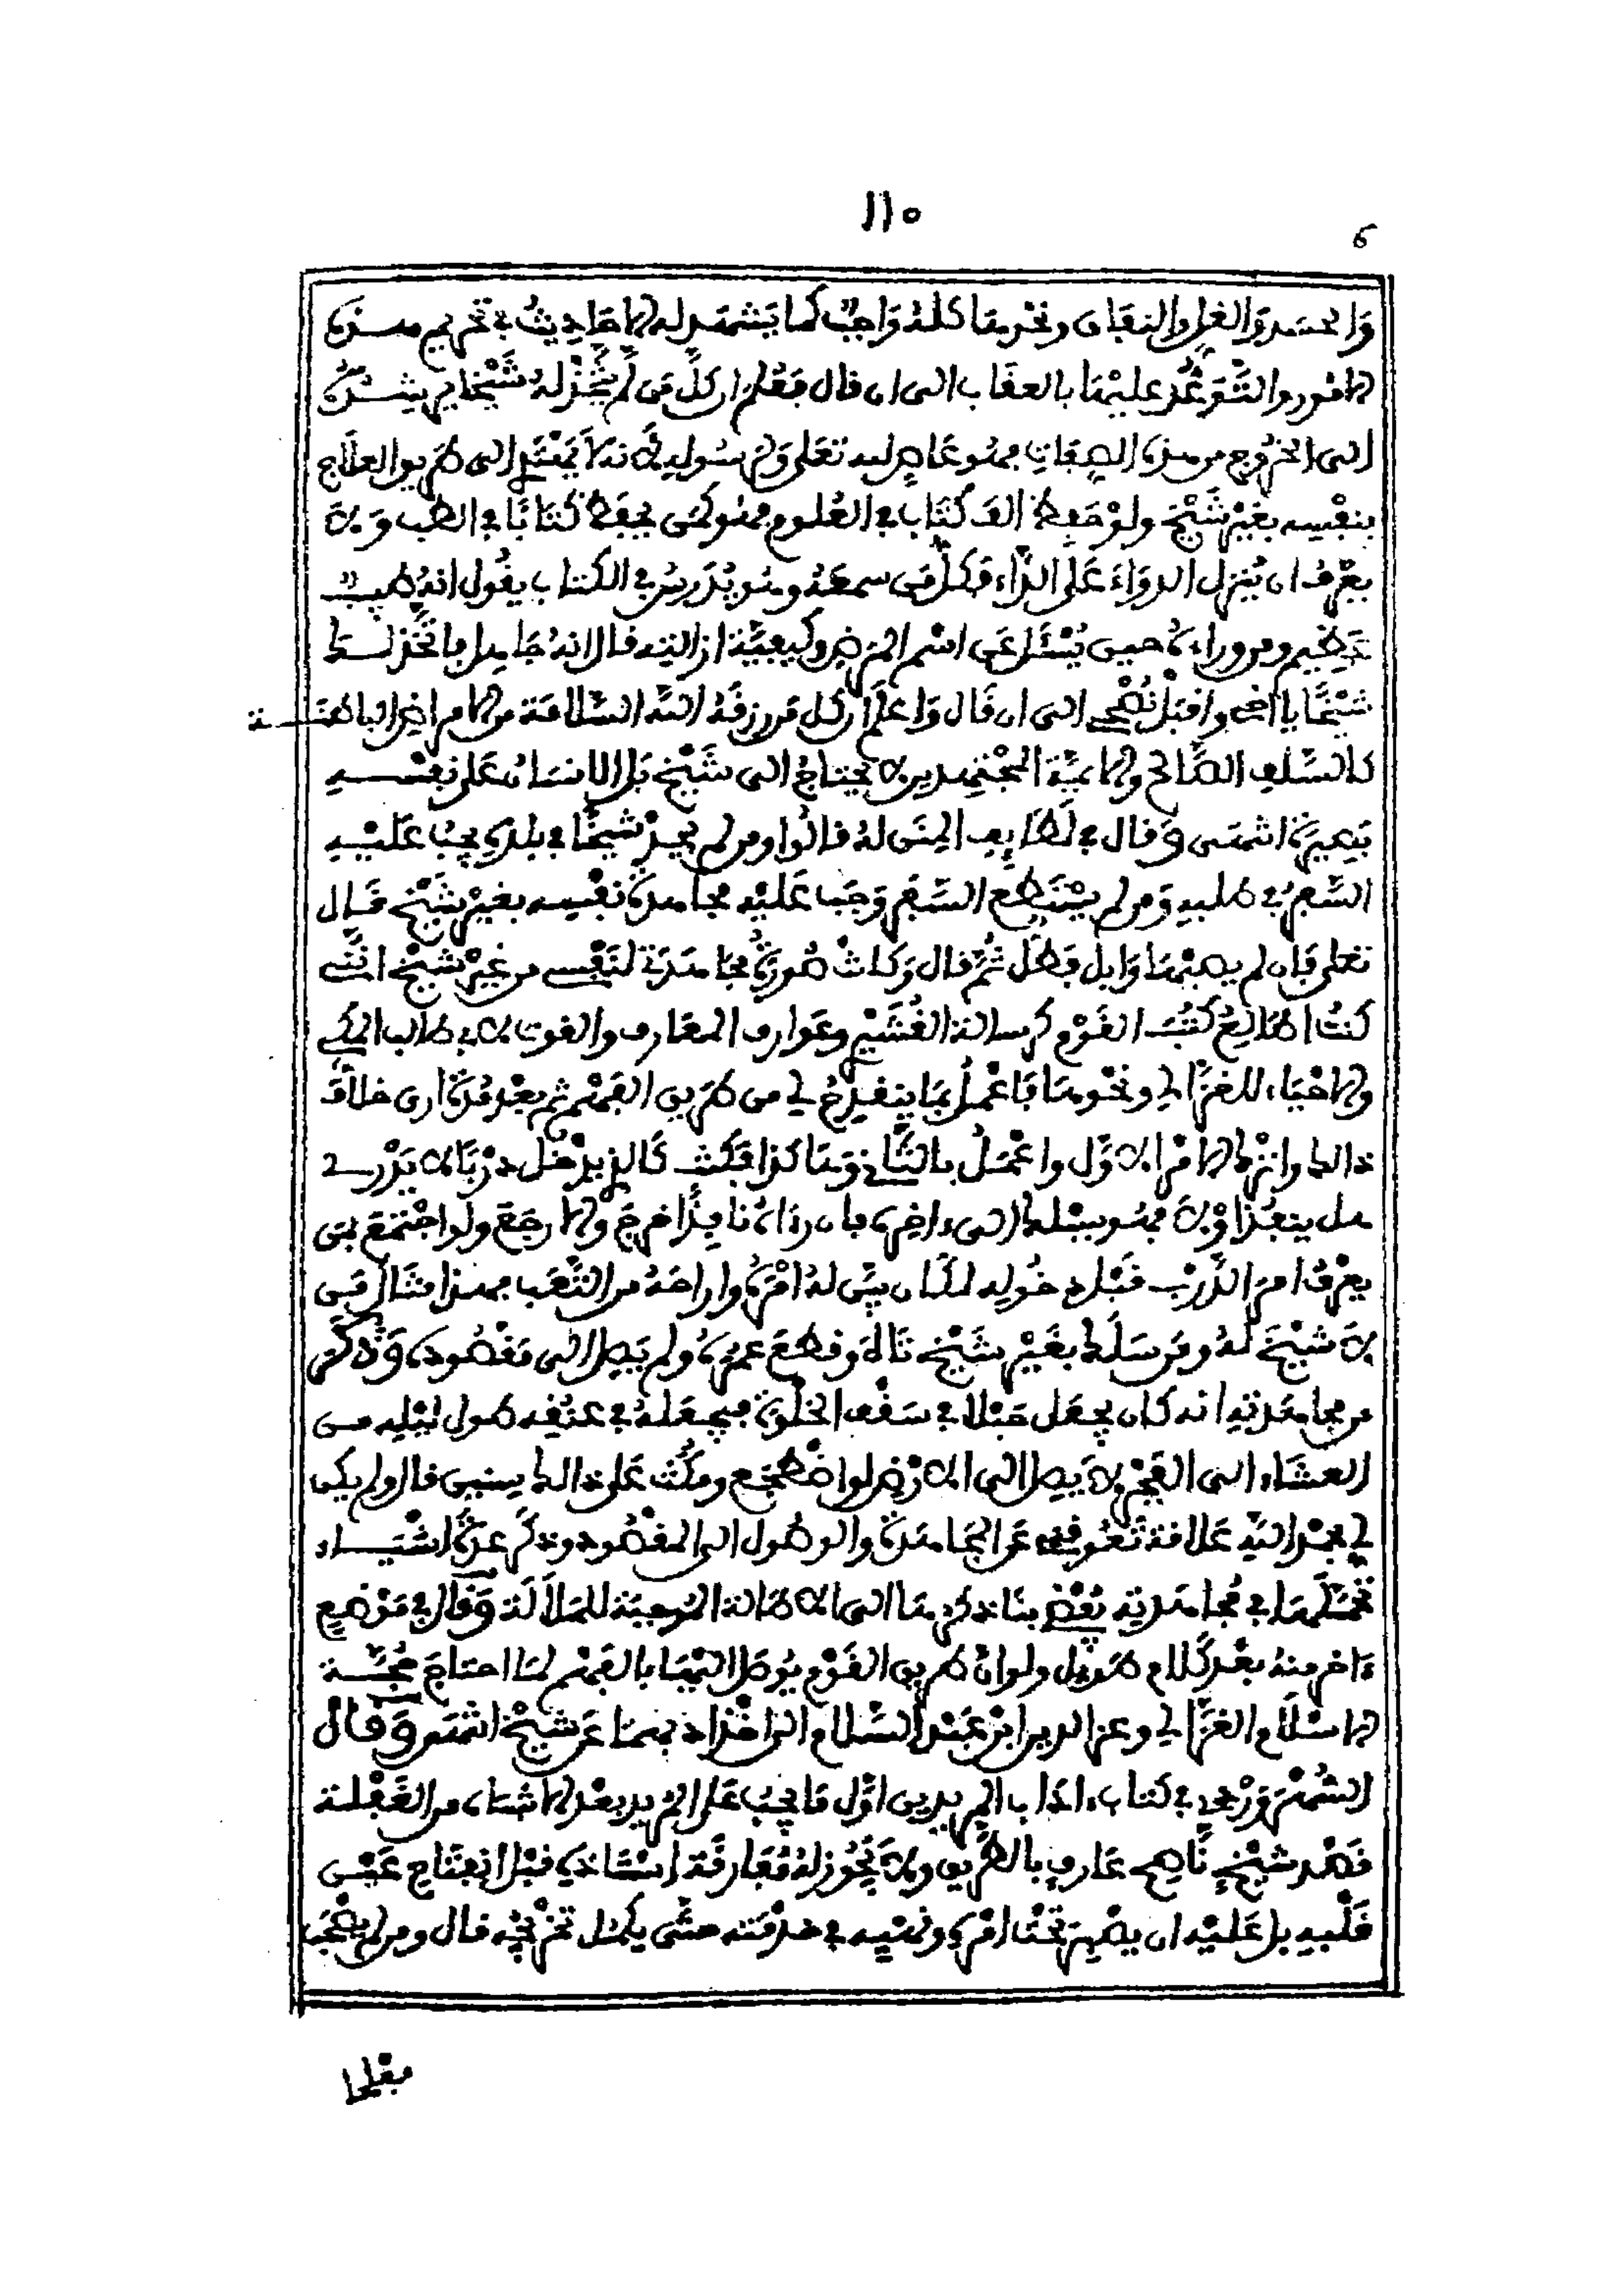 ١١٠
6
وَالحسد وَالغل والنفاق ونحوها كلهُ وَاجبٌ كما يَشهد له الاحاديثُ في تحريم هذه
الامور والتَّوعُّد عليهَا بالعقاب الى ان قال فعُلم ان كلَّ مَن لم يتَّخذ له شَيْخا يرشده
الى الخرُوج من هذه الصفاتِ فهو عَاصٍ لله تعَلى ولرسوله لأنه لا يَهْتَدِي الى طريق العلَاج
بنفْسه بغيْر شَيْخ ولوْ حَفِظ الف كتَابٍ في العُلوم فهو كمَن يحفظ كتابًا في الطب وَلا
يعْرفُ ان يُنزل الدوَاءَ عَلى الدَّاء فكلّ مَن سمعَهُ وهو يُدَرسُ في الكتاب يقُول انهُ طبيبٌ
عَظيم ومن وراءه حين يُسْئَل عَن اسْم المرَض وكيفيّة ازالته قال انهُ جَاهل فاتّخذ لك
شيْخًا يا اخي واقبَلْ نُصْحي الى ان قَال وَاعلَم ان كل مَن رزقَهُ الله السّلامَة من الامراض الباطنَة
كالسّلف الصَّالح والايمّة المجْتهدين لا يحتاجُ الى شَيْخ بَل الانسَانُ عَلى نفْسه
بَصيرَة انتهى وَقال في لطَايف المِنَن لهُ قالُوا ومن لم يجدْ شيخًا في بلده يجبُ عَليْه
السَّفرُ في طلبه وَمن لم يسْتَطع السّفَر وَجَب عَليْه مجاهدة نفْسه بغيْر شَيْخ قَال
تعَلى فإن لم يصبْهَا وَابل فطَل ثمَّ قال وَكانتْ صُورَةُ مجَاهَدَتي لنَفْسي من غيْر شيْخ انّني
كنتُ اطَالِعُ كتُبَ القوْم كرسالة القُشَيْري وعَوارف المعَارف والقوت لابي طالب المكي
والاحْيَاء للغزَّالي ونحْوهَا فَاعْمَلُ بمَا ينقدحُ لي من طَريق الفَهْم ثم بعْد مُدّة ارى خلَافَ
ذالك وانْزل الامْر الاوَّل واعْمَلُ بالثّاني وَهَا كذا فكنتُ كَالذي يدْخل درْبًا لا يَدْري
هل ينفُذ اوْ لا فهو يسْلك الى ءاخره فإن رءاهُ نَافِذًا خرجَ والا رجَعَ ولو اجْتَمَعَ بمَن
يعْرفُ امرَ الدّرْب قَبْل دخُوله لكان بيَّن لهُ امْرَهُ واراحَهُ من التّعَب فهذا مثَال مَن
لا شيْخَ لهُ ومَن سَلك بغَيْر شَيْخ تَاهَ وقطعَ عمره ولم يَصِل الى مَقْصُوده وَذكر
من مجَاهَدته انه كان يجعَل حَبْلا في سَقْف الخلْوَة فيجعَلهُ في عنُقه طول ليْله من
العشَاء الى الفَجْر لا يَصِل الى الارْض لو اضْطجَع ومكَثَ عَلى ذالك سنين قال ولم يكن
لي بحمْد الله عَلاقة تَعُوقني عَن المجَاهدة والوصُول الى المقْصُود وذكَر عدّة اشْيَاء
تحمّلَهَا في مُجَاهَدته يُفْضي بنَا ذكرهَا الى الاطَالة الموجبَة للملَالَة وَقال في مَوْضع
ءاخر منهُ بعْد كلَام طَويل ولو انّ طريق القَوْم يُوصَل اليْهَا بالفَهْم لمَا احتاجَ حُجّة
الاسْلَام الغزّالي وعز الدين ابنْ عَبْد السّلام الى اخْذ ادبهمَا عَن شَيْخ انتهى وَقَال
السُّهْرَوَرْدي في كتاب ءادَاب المريدين اوَّل مَا يجبُ عَلى المريد بعْد الانتبَاه من الغَفْلة
قَصْد شيْخ نَّاصح عَارف بالطَّريق ولا يَجُوز لهُ مُفَارقَة اسْتَاذه قبْل انفتَاح عَيْن
قَلْبه بل عَليْه ان يصْبرَ تحْتَ امْره ونهْيه في خدْمَته حتّى يكمُل تخرْجُه قال ومن لم يصْحَب
مفلحا